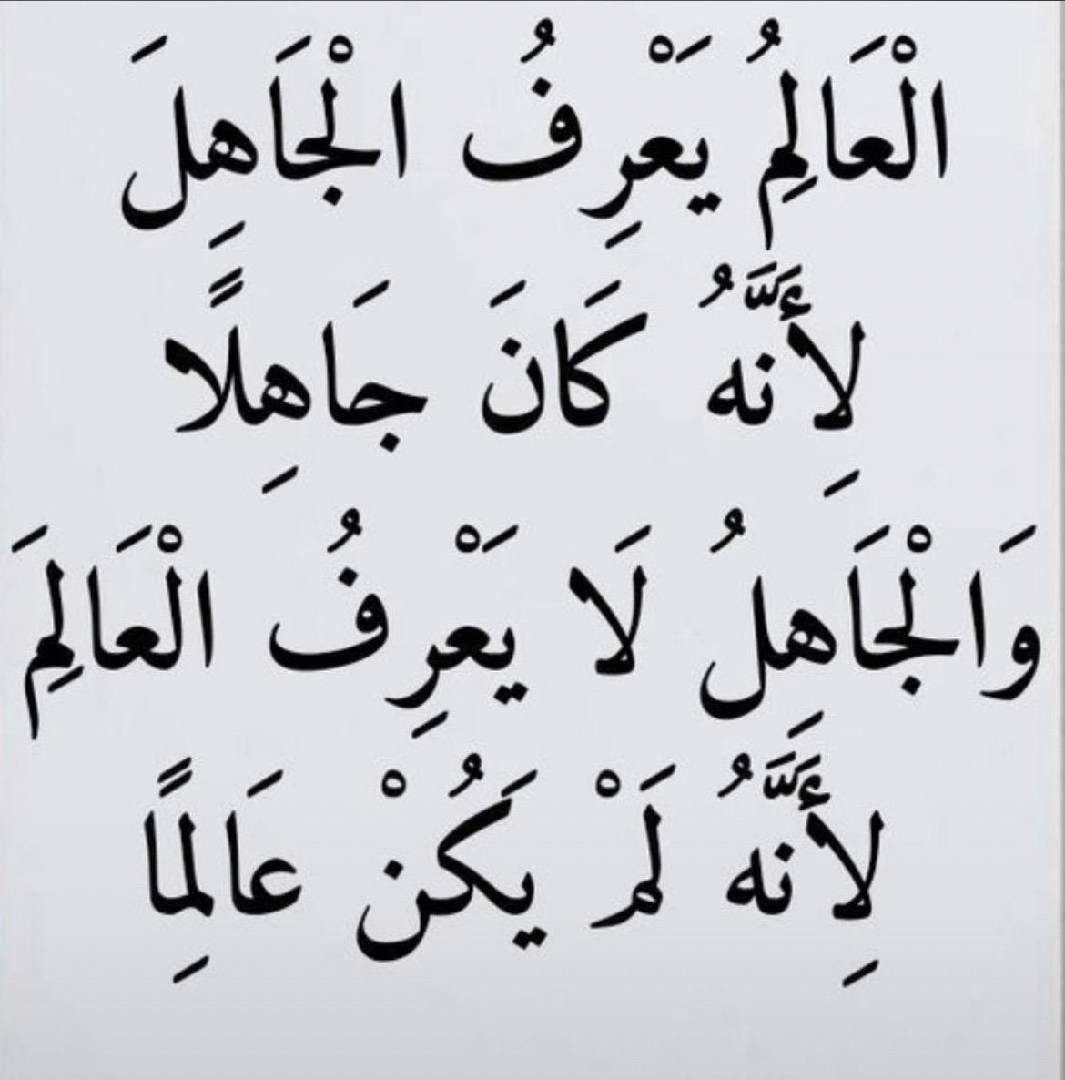 الْعَالِمُ يَعْرِفُ الْجَاهِلَ
لِأَنَّهُ كَانَ جَاهِلًا
وَالْجَاهِلُ لَا يَعْرِفُ الْعَالِمَ
لِأَنَّهُ لَمْ يَكُنْ عَالِمًا